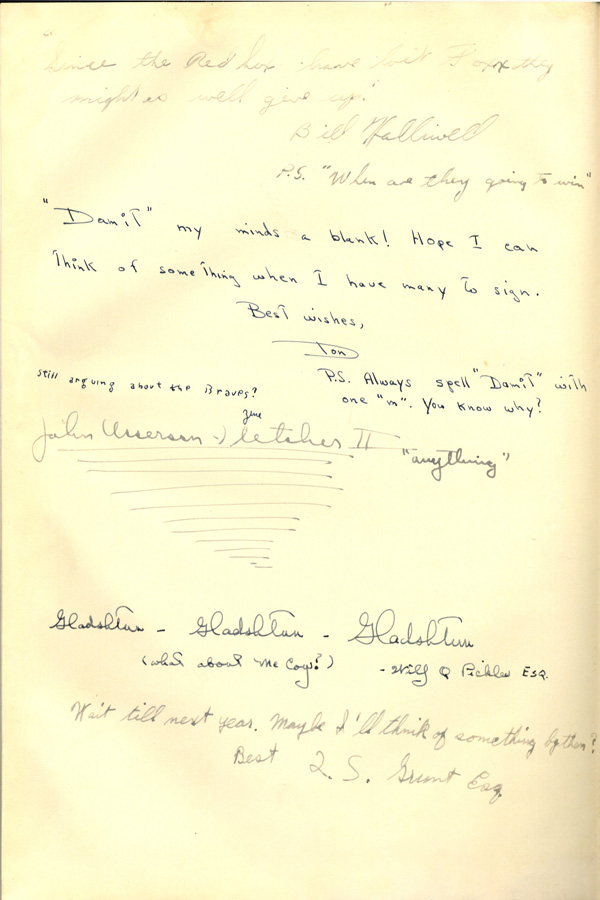 "Since the Red Sox have lost Foxx they
might as well give up."
Bill Halliwell
P.S. "When are they going to win"
"Damit" my minds a blank! Hope I can
think of something when I have many to sign.
Best wishes,
Don
P.S. Always spell "Damit" with
one "m". You know why?
still arguing about the Braves?
John Fletcher II
"anything"
Gladshtun - Gladshtun - Gladshtun
(what about McCoy?) - Wilf Q Pickles ESQ.
Wait till next year. Maybe I'll think of something by then?
Best Q. S. Grunt Esq.